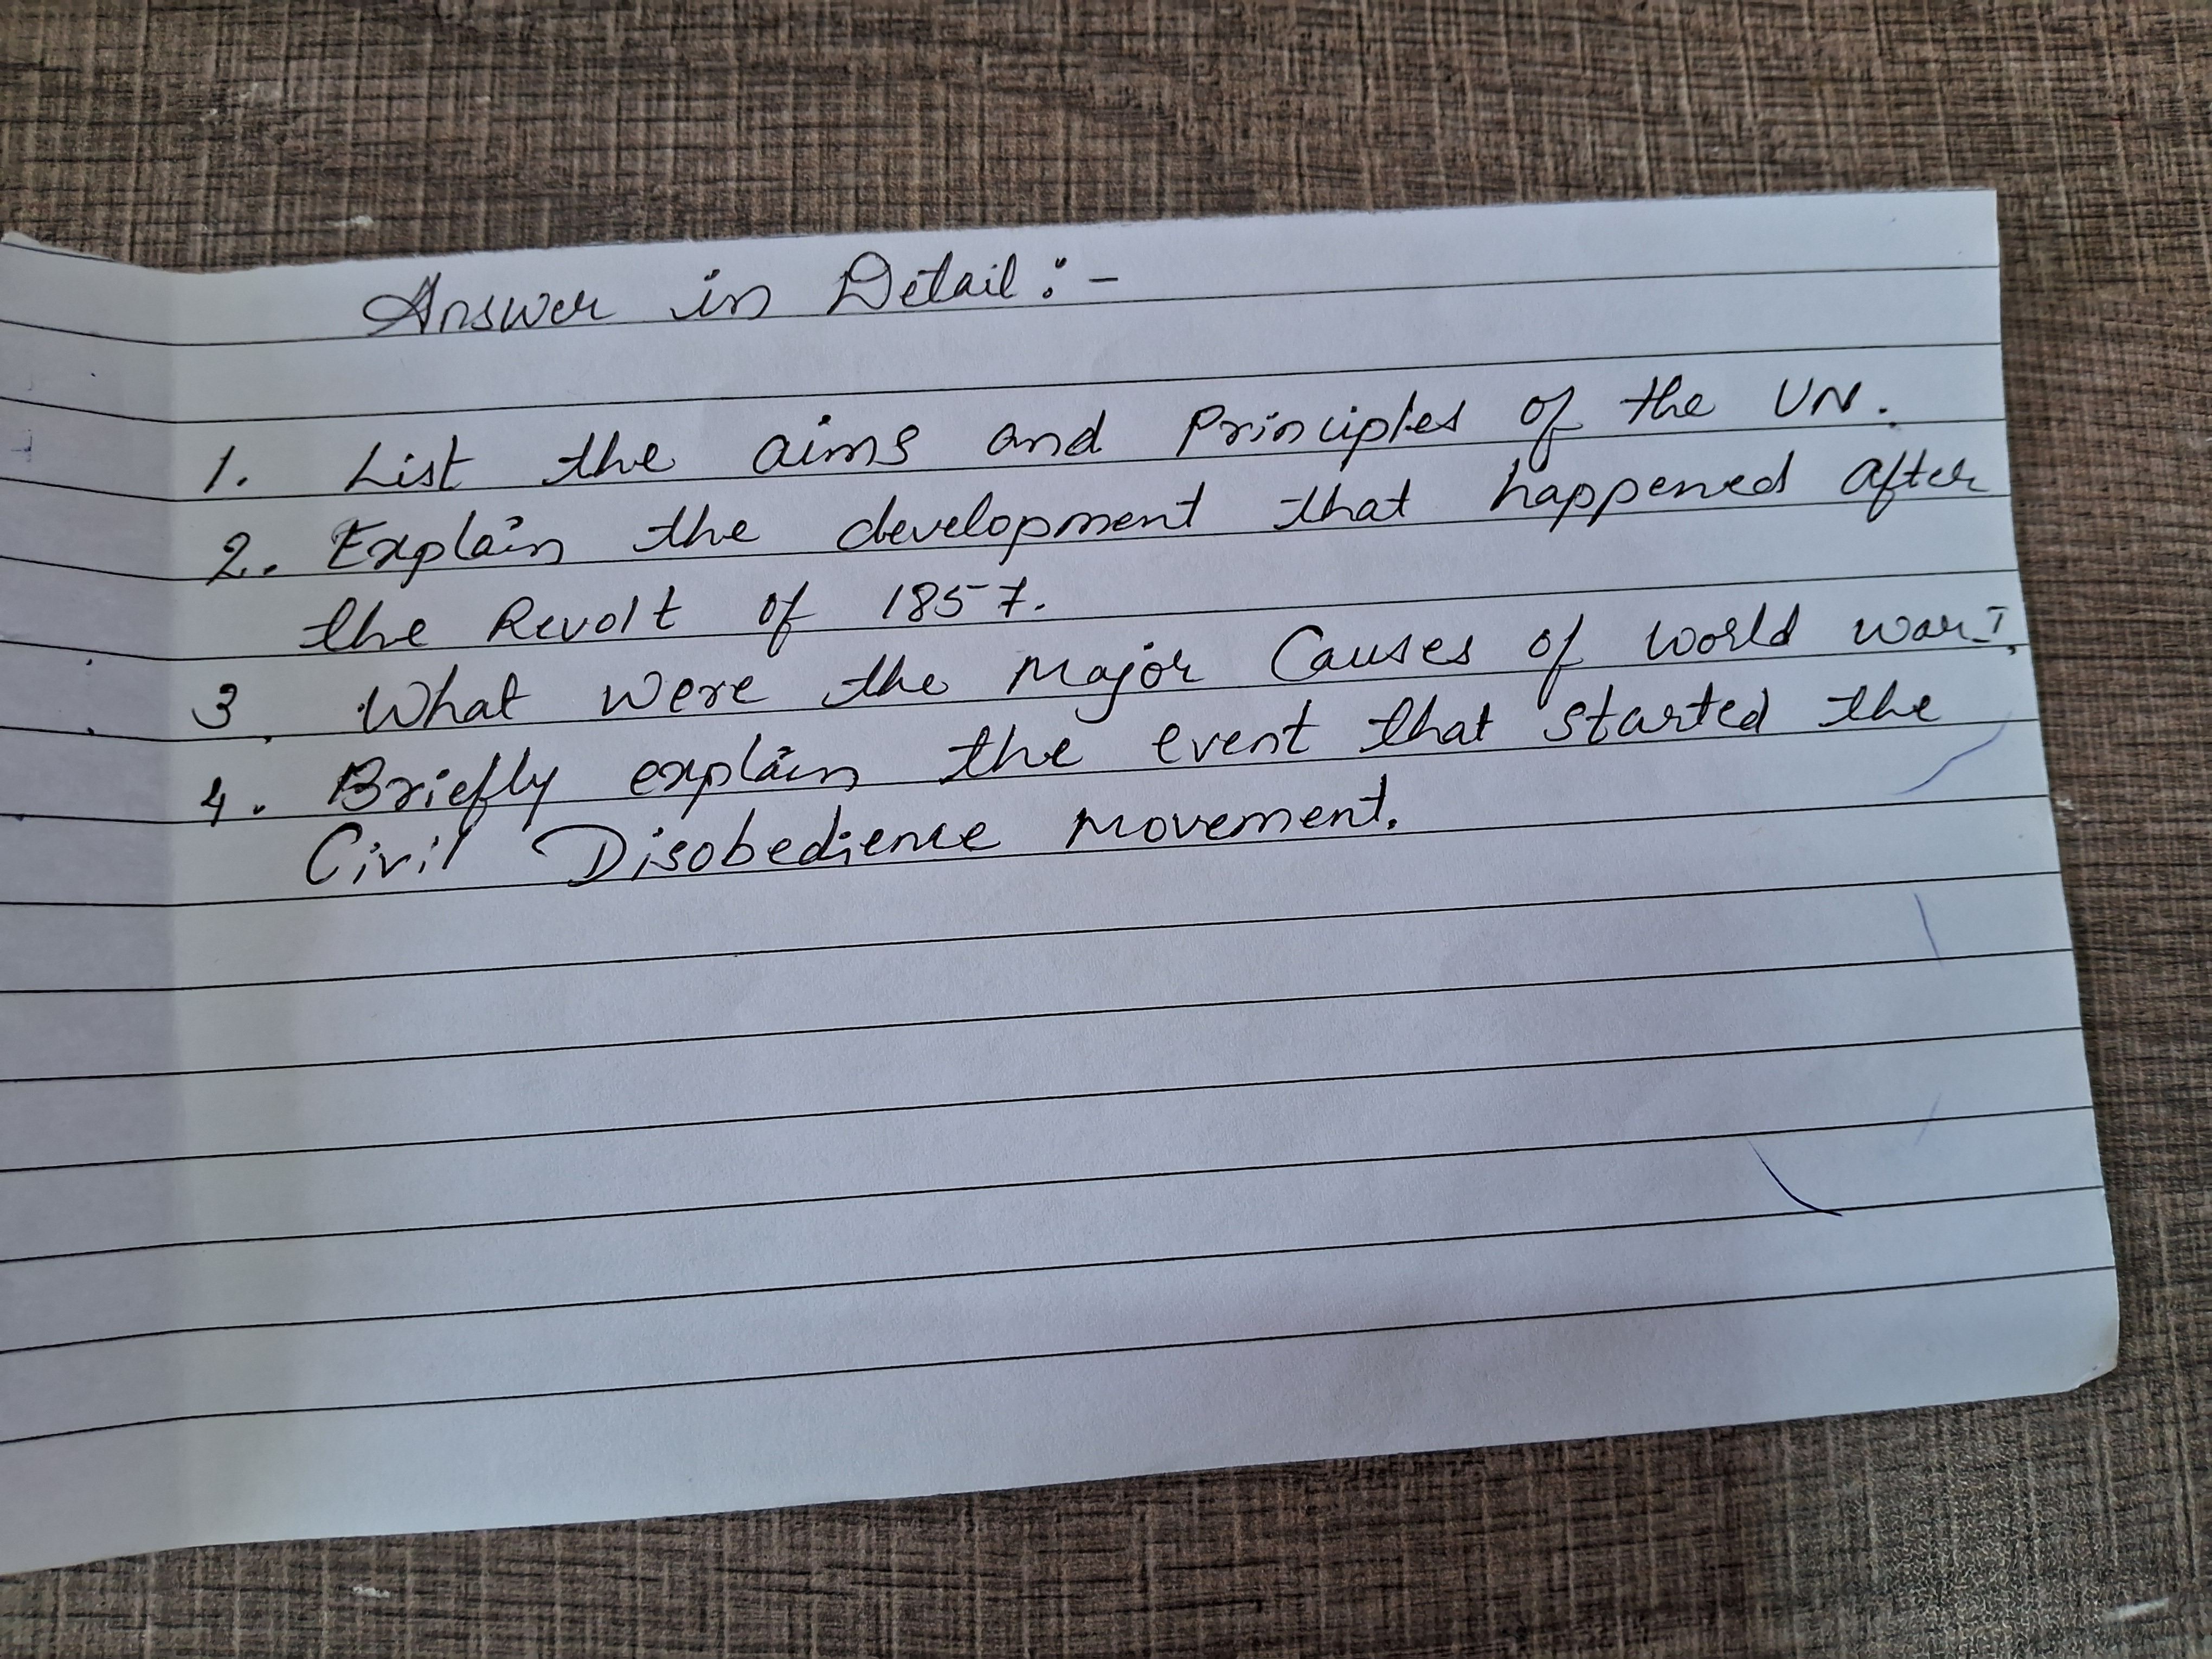 Answer in Detail:-
1. List the aims and Principles of the UN.
2. Explain the development that happened after
the Revolt of 1857.
3. What were the Major Causes of World war I.
4. Briefly explain the event that started the
Civil Disobedience Movement.